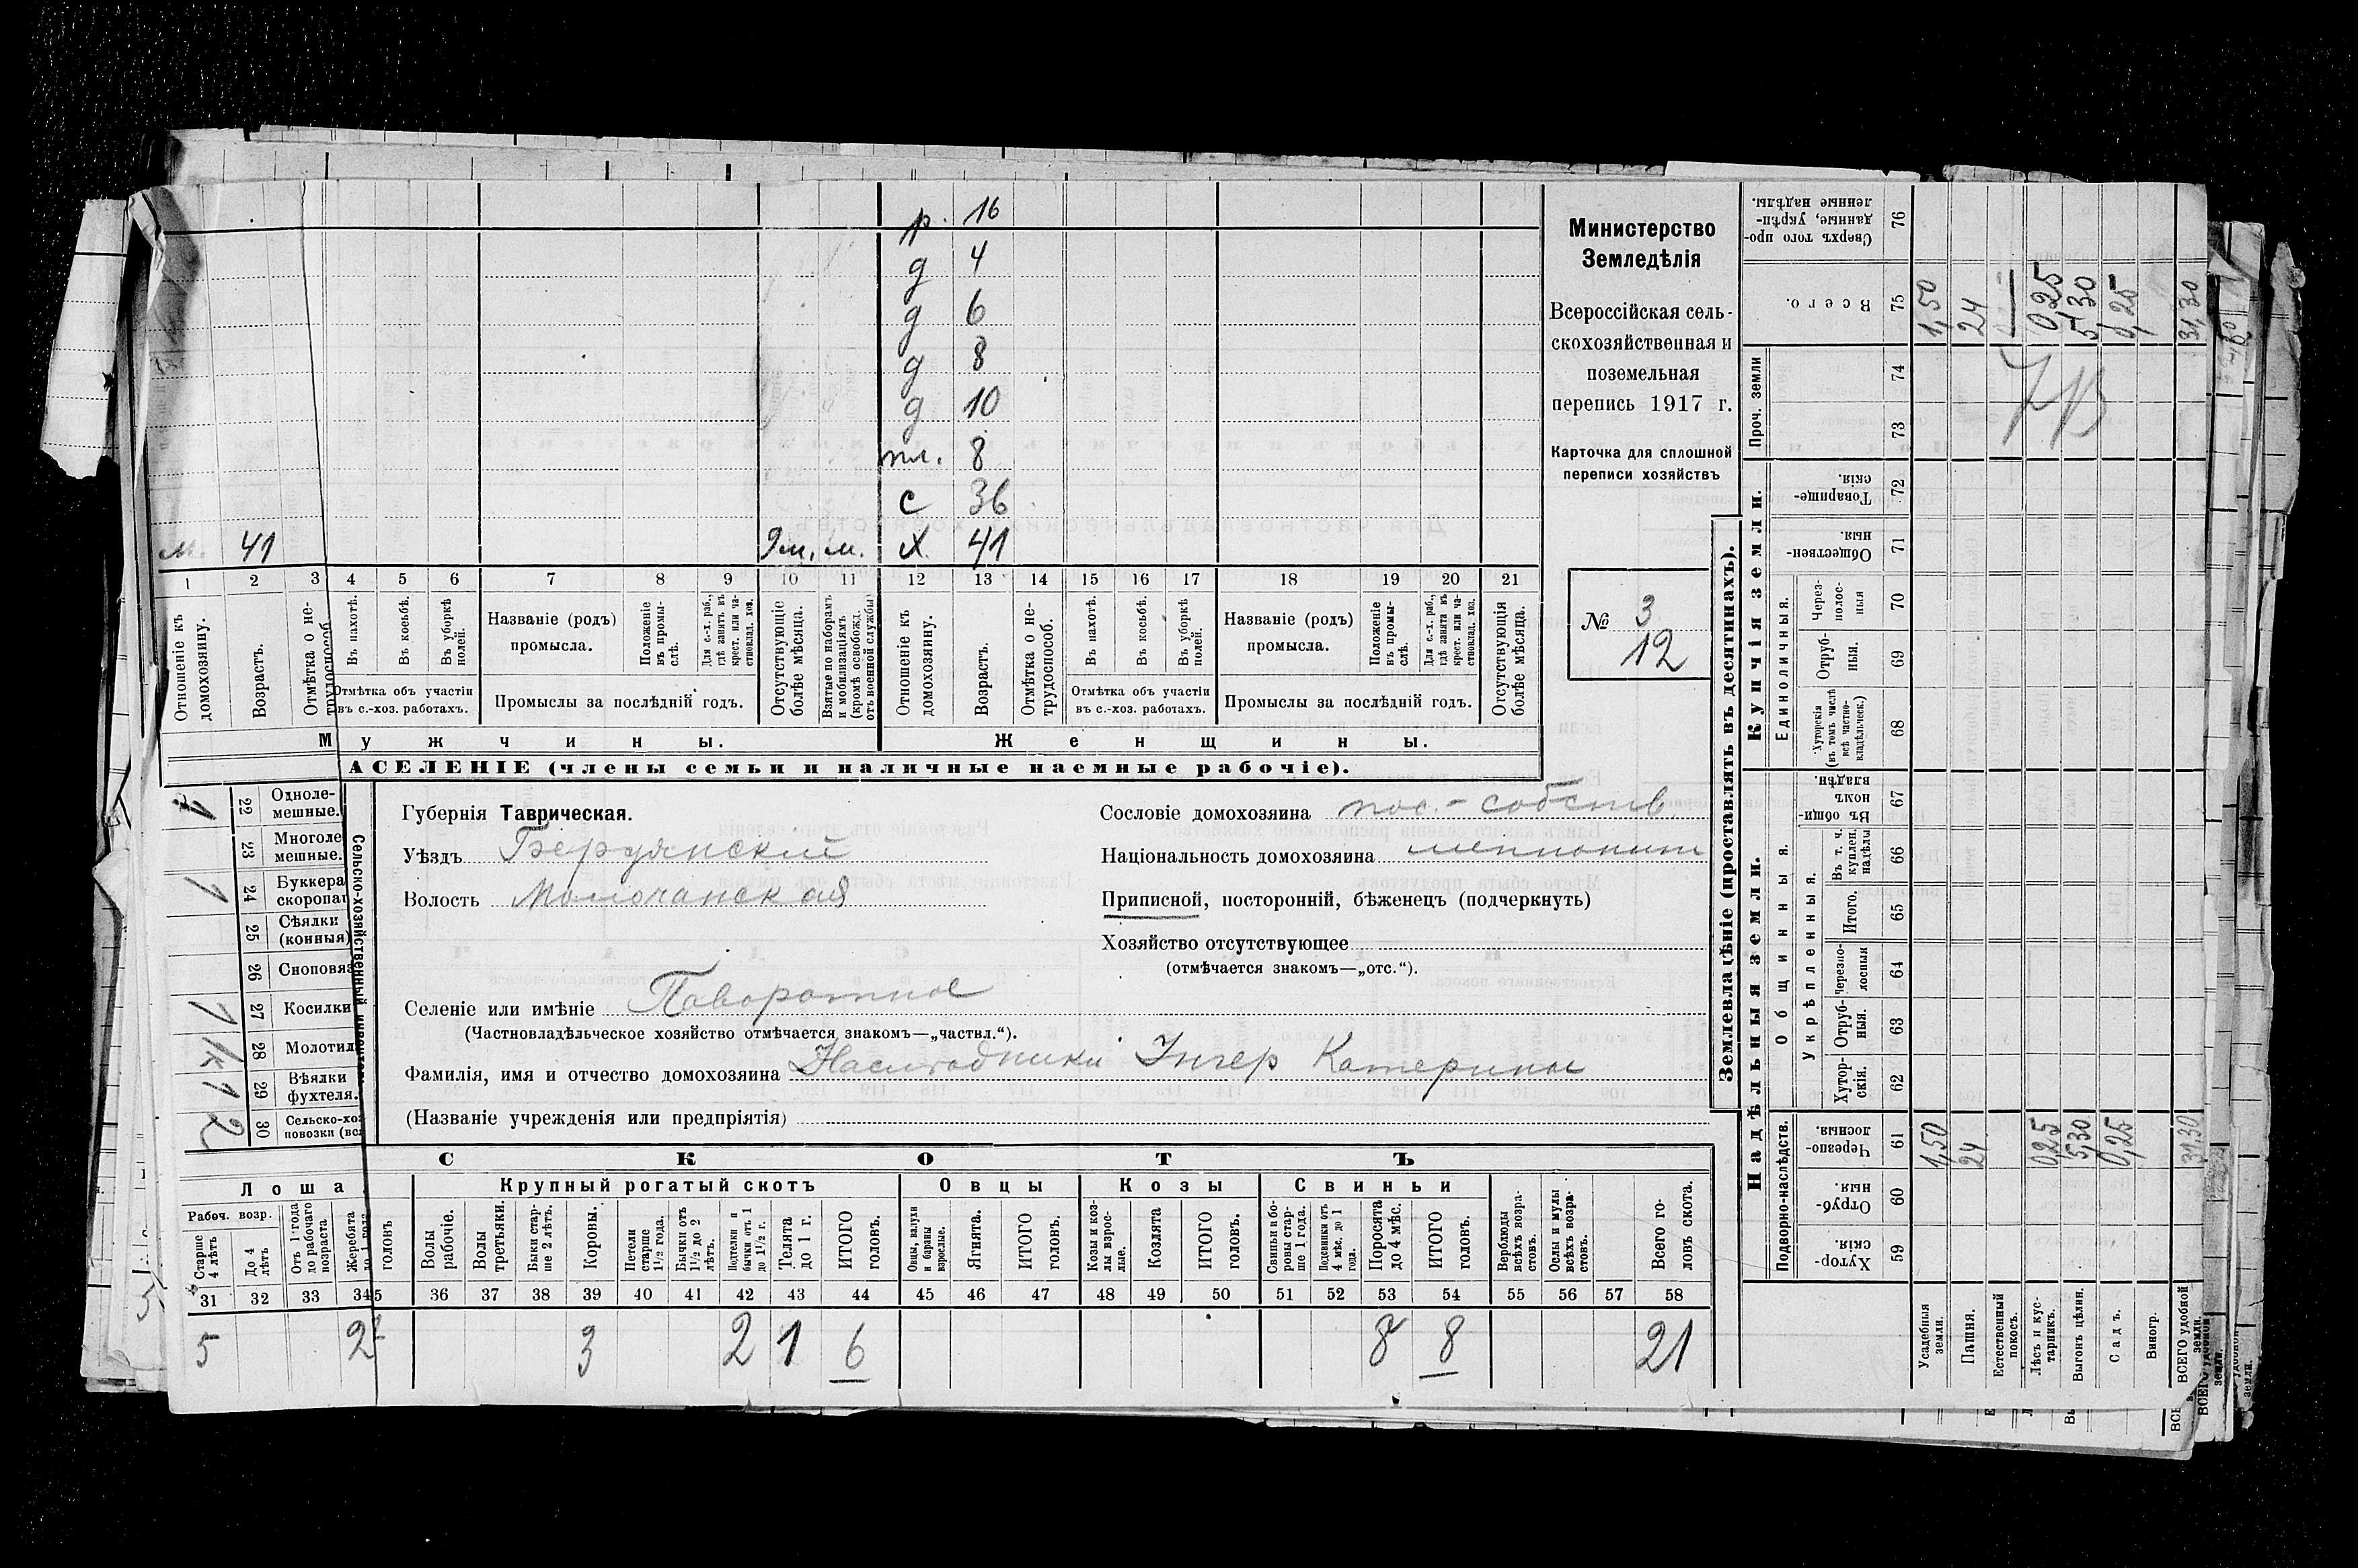 р. 16
д 4
д 6
д 8
д 10
пл. 8
с 36
м. 41 9м. м. х. 41
1 2 3 4 5 6 7 8 9 10 11 12 13 14 15 16 17 18 19 20 21
Отношеніе къ домохозяину.
Возрастъ.
Отмѣтка о не-трудоспособ.
Въ пахотѣ.
Въ косьбѣ.
Въ уборкѣ полей.
Отмѣтка объ участіи въ с.-хоз. работахъ.
Названіе (родъ) промысла.
Положеніе въ промы-слѣ.
Для с.-х. раб., гдѣ занятъ въ крест. или ча-стновлад. хоз.
Промыслы за послѣдній годъ.
Отсутствующіе болѣе мѣсяца.
Взятые по наборамъ и мобилизаціямъ (кромѣ освобожд. отъ военной службы)
Отношеніе къ домохозяину.
Возрастъ.
Отмѣтка о не-трудоспособ.
Въ пахотѣ.
Въ косьбѣ.
Въ уборкѣ полей.
Отмѣтка объ участіи въ с.-хоз. работахъ.
Названіе (родъ) промысла.
Положеніе въ промы-слѣ.
Для с.-х. раб., гдѣ заняти въ крест. или ча-стновлад. хоз.
Промыслы за послѣдній годъ.
Отсутствующія болѣе мѣсяца.
Мужчины.
Женщины.
АСЕЛЕНІЕ (члены семьи и наличные наемные рабочіе).
Министерство
Земледѣлія
Всероссійская сель-
скохозяйственная и
поземельная
перепись 1917 г.
Карточка для сплошной
переписи хозяйствъ
№ 3
12
Губернія Таврическая.
Уѣздъ Бердянский
Волость Молочанская
Сословіе домохозяина пос.-собств.
Національность домохозяина меннонит
Приписной, посторонній, бѣженецъ (подчеркнуть)
Хозяйство отсутствующее
(отмѣчается знакомъ—„отс.“).
Селеніе или имѣніе Поворотное
(Частновладѣльческое хозяйство отмѣчается знакомъ—„частвл.“).
Фамилія, имя и отчество домохозяина Наследники Унгер Катерины
(Названіе учрежденія или предпріятія)
Сельско-хозяйственный инвентарь
22 Одноле-мешные. 1
23 Многоле мешные.
24 Буккера скоропаш 1
25 Сѣялки (конныя)
26 Сноповяз
27 Косилки 1
28 Молотил 1к
29 Вѣялки фухтеля. 1
30 Сельско-хоз повозки (вс 2
СКОТЪ
Лоша
Рабоч. возр.
Старше 4 лѣтъ
До 4 лѣтъ
Отъ 1 года до рабочаго возраста
Жеребята до 1 года
головъ
Крупный рогатый скотъ
Волы рабочіе.
Волы третьяки.
Быки стар-ше 2 лѣтъ.
Коровы.
Нетели старше 1½ года.
Бычки отъ 1½ до 2 лѣтъ.
Подтелки и бычки отъ 1 до 1½ г.
Телята до 1 г.
ИТОГО головъ.
Овцы
Овцы, валухи и бараны взрослые.
Ягнята.
ИТОГО головъ.
Козы
Козы и коз-лы взрос-лые.
Козлята
ИТОГО головъ.
Свиньи
Свиньи и бо-ровы стар-ше 1 года.
Подсвинки отъ 4 мѣс. до 1 года.
Поросята до 4 мѣс.
ИТОГО головъ.
Верблюды всѣхъ возра-стовъ.
Ослы и мулы всѣхъ возра-стовъ.
Всего го-ловъ скота.
31 32 33 34 5 36 37 38 39 40 41 42 43 44 45 46 47 48 49 50 51 52 53 54 55 56 57 58
5 2 3 2 1 6 8 8 21
Землевладѣніе (проставлять въ десятинахъ).
Надѣльныя земли.
Купчія земли.
Проч. земли
Подворно-наслѣдств.
Общинныя.
Укрѣпленныя.
Единоличныя.
Хутор-скія. 59
Отруб-ныя. 60
Черезпо-лосныя. 61
Хутор-скія. 62
Отруб-ныя. 63
Черезпо-лосныя 64
Итого. 65
Въ т. ч. куплен. надѣлы 66
Въ общи-номъ владѣн. 67
Хуторскія (въ томъ числѣ всѣ частно-владѣльческ.) 68
Отруб-ныя. 69
Через-полос-ныя 70
Обществен-ныя. 71
Товарище-скія. 72
73
74
Всего. 75
Сверхъ того про-данные, укрѣп-ленные надѣлы. 76
Усадебныя земли. 1,50 1,50
Пашня. 24 24
Естественный покосъ.
Лѣсъ и кус-тарникъ. 0,25 0,25
Выгонъ цѣлин. 5,30 5,30
Садъ. 0,25 0,25
Виногр.
ВСЕГО удобной земли. 31,30 31,30